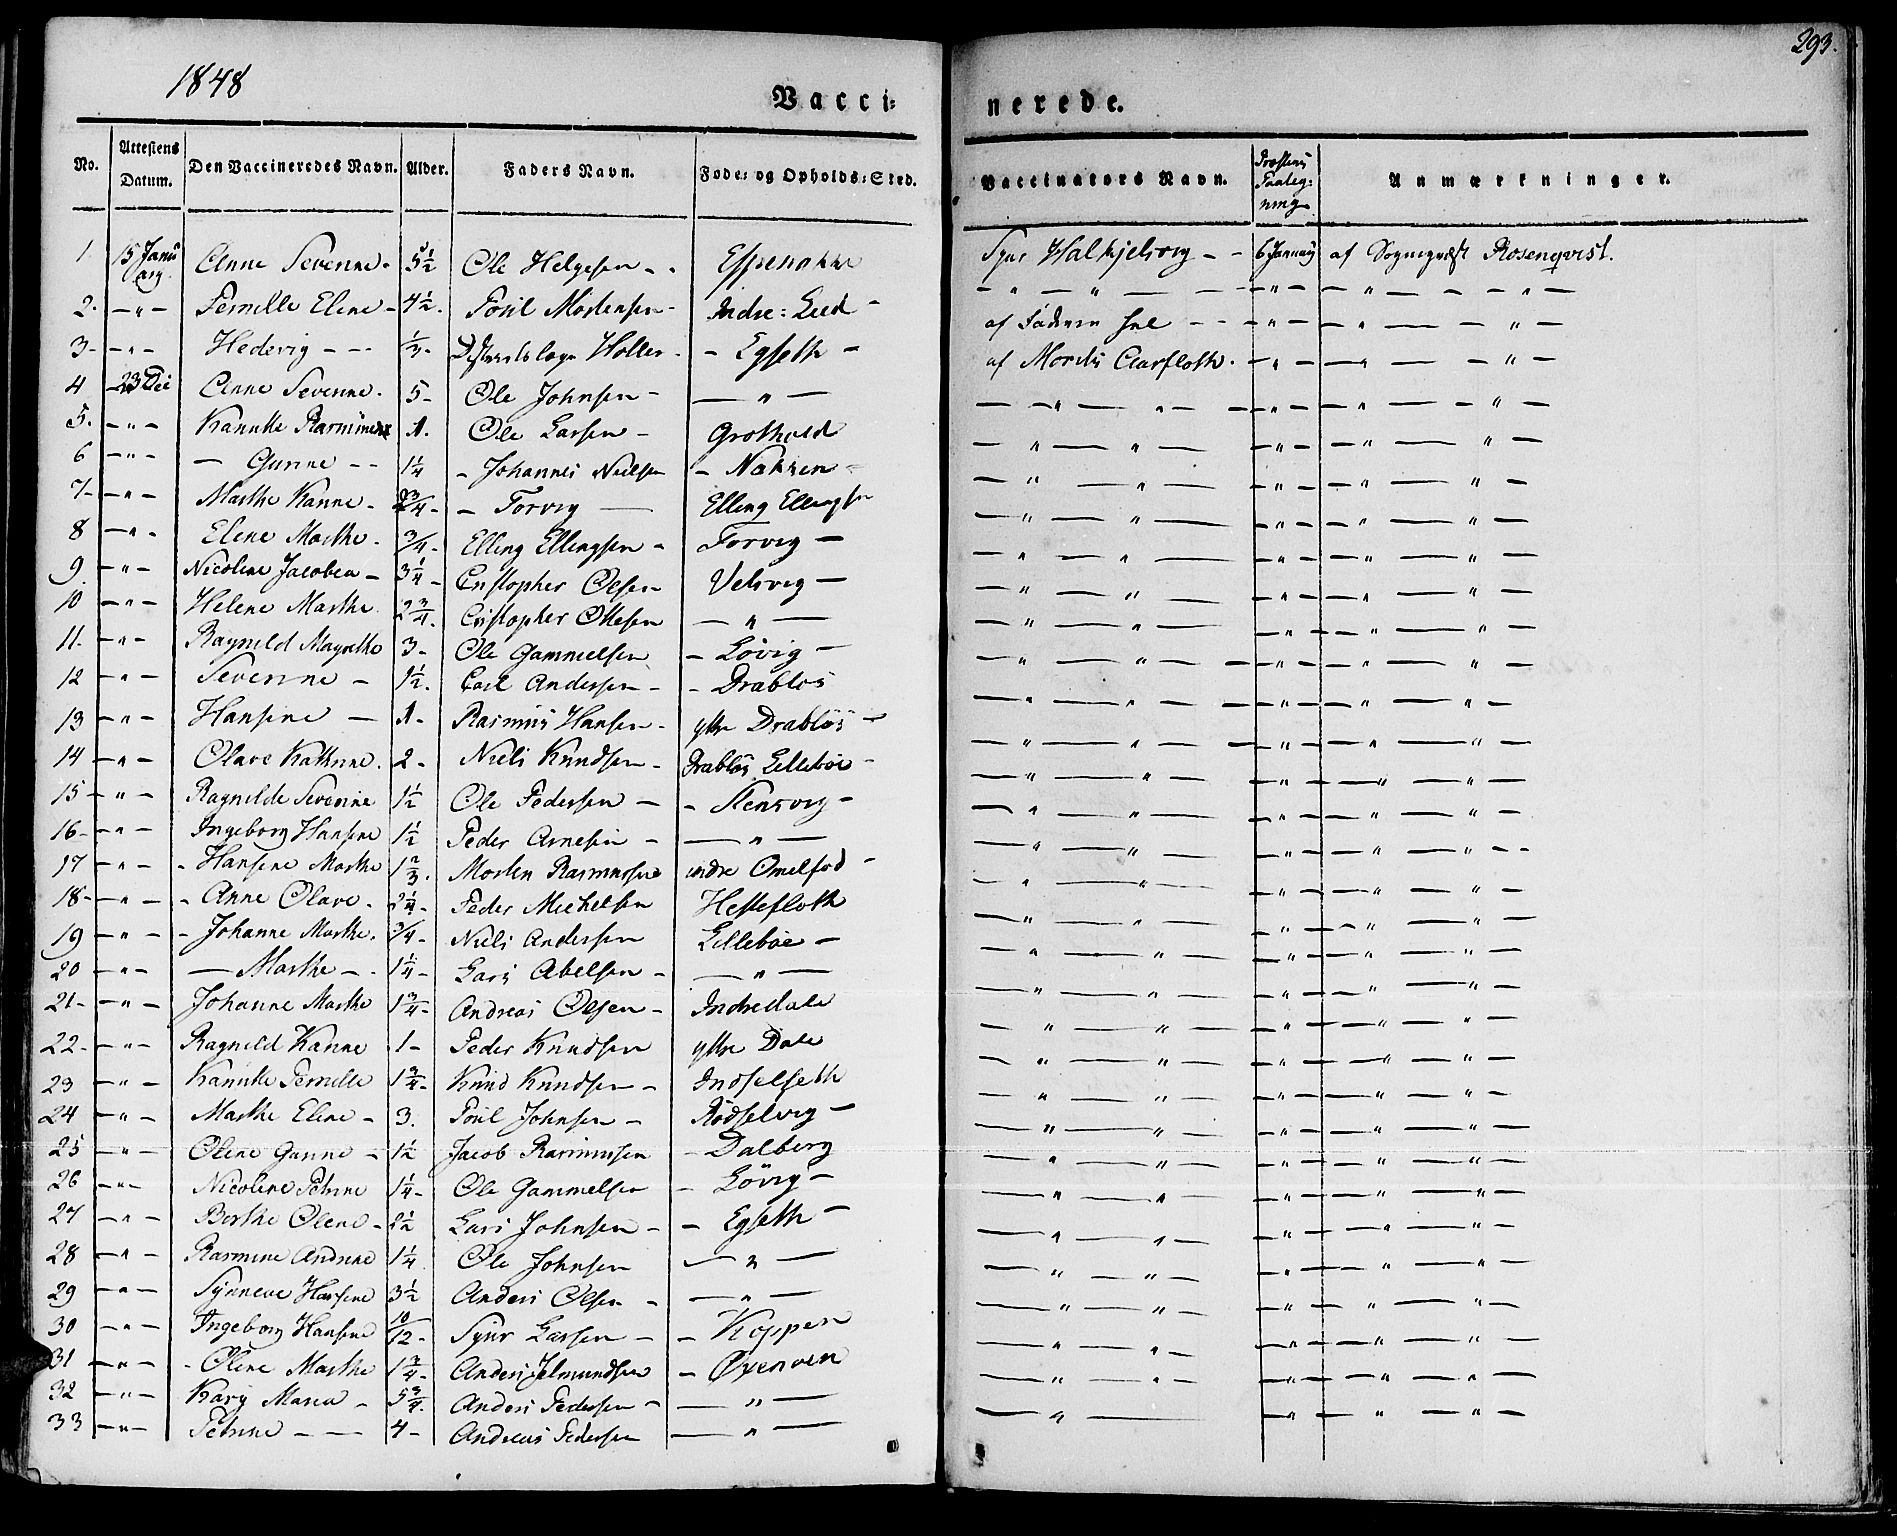 1848
293.
Vacci=
nerede.
No. Attestens Datum. Den Vaccineredes Navn. Alder. Faders Navn. Føde= og Opholds=Sted. Vaccinators Navn. Anmærkninger.
1 15 Janu ary. Anne Severine. 5½ Ole Helgesen - - 6 January af Sogneprest Rosenqvist.
2. - " - Pernille Eline - 4½. Poül Mortensen - Indre= - " - - " - - " -
3 - " - Hedevig - - - 1/3 - Holler - - Egseth - af Faderen - " - - " - - " -
4 23 Dec Anne Severine. 5 - Ole Johnsen - - " - af Aarfloth. - " - - " - - " -
5. - " - Rasmine 1. Ole Larsen - - " - - " - - " - - " -
6 - " - - Gurine - - 1¼ - Johannes Nielsen - Nakken - - " - - " - - " - - " -
7 - " - Marthe Hanne - ¾ - - Torvig - Elling Ellingsen - " - - " - - " - - " -
8 - " - Elene Marthe - ¾ - Elling Ellingsen - Torvig - - " - - " - - " - - " -
9 - " - Nicoline Jacobea - 3¼ - Cristopher Olsen - Velsvig - - " - - " - - " - - " -
10 - " - Helene Marthe 2¾. Cristopher Ottesen - " - - " - - " - - " - - " -
11. - " - Ragnild Magrethe 3 - Ole Gammelsen - Løvig - - " - - " - - " - - " -
12 - " - Severine - 1½. Carl Andersen - - Drabløs - " - - " - - " - - " -
13 - " - Hansine - 1 - Rasmus Hansen - ytre Drabløs - - " - - " - - " - - " -
14 - " - Olave Kathrine. 2 - Niels Knudsen - Drabløs Lillebøe - - " - - " - - " - - " -
15 - " - Ragnilde Severine 1½ Ole Pedersen - - Stensvig - - " - - " - - " - - " -
16 - " - Ingeborg Hansine 1½ Peder Arnesen - - " - - " - - " - - " - - " -
17 - " - - Hansine Marthe 1⅔. Morten Rasmussen indre - " - - " - - " - - " -
18 - " - - Anne Olave. 2¼ - Peder Michelsen Hestefloth - " - - " - - " - - " -
19 - " - - Johanne Marthe. ¾ - Niels Andersen Lillebøe - - " - - " - - " - - " -
20 - " - - Marthe - - 1¼ - Lars Abelsen - - " - - " - - " - - " - - " -
21 - " - Johanne Marthe 1¾ - Andreas Olsen - Indredale - " - - " - - " - - " -
22 - " - Ragnild Hanne 1 - Peder Knudsen ytre Dale - " - - " - - " - - " -
23 - " - Pernille 1¾ - Knud Knudsen - Indselseth - " - - " - - " - - " -
24 - " - Marthe Eline - 3. Poül Johnsen - Rødselvig - - " - - " - - " - - " -
25 - " - Oline Gurine - 1½ Jacob Rasmussen - Dalberg - " - - " - - " - - " -
26 - " - Nicoline Petrine 1¼ - Ole Gammelsen - Løvig - - " - - " - - " - - " -
27 - " - Berthe Olene - 2½ Lars Johnsen - - Egseth - - " - - " - - " - - " -
28 - " - Rasmine Andrine 1¼ Ole Johnsen - " - - " - - " - - " - - " -
29 - " - Synneve Hansine 3½ Anders Olsen - - " - - " - - " - - " - - " -
30 - " - Ingeborg Hansine 10/12 - Syur Larsen - - Koppen - " - - " - - " - - " -
31 - " - - Oline Marthe 1¾ - Anders - - " - - " - - " - - " -
32 - " - Kary Maria - 5¾. Anders Pedersen - - " - - " - - " - - " - - " -
33 - " - Petrine - - - 4 - Andreas Pedersen - " - - " - - " - - " - - " -